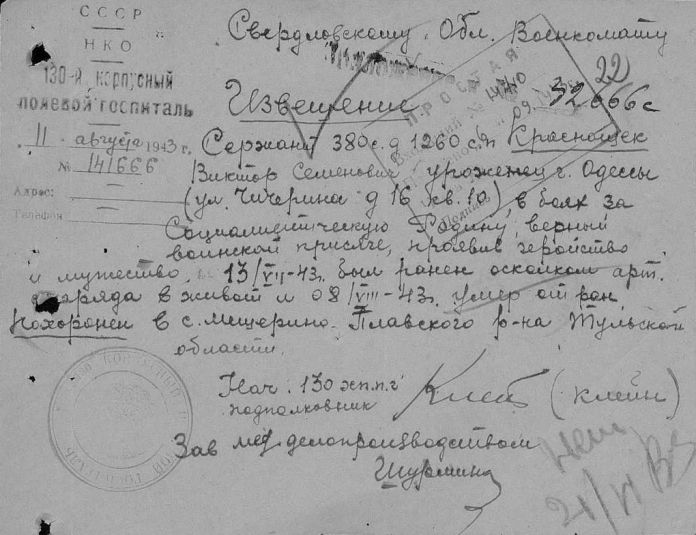 СССР
НКО
130-й корпусный
полевой госпиталь
11 августа 1943 г.
№ 141666
Адрес:
Телефон
Свердловскому Обл. Военкомату
ПРОСТАЯ
22
Извещение
32666с
Сержант 380 с.д 1260 с.п Краснощек
Виктор Семенович, уроженец г. Одессы
(ул. Чичерина д 16 кв. 10), в боях за
Социалистическую Родину, верный
воинской присяге, проявив геройство
и мужество, 13/VII-43г. был ранен осколком арт.
снаряда в живот и 08/VIII-43г. умер от ран.
Похоронен в с. Мещерино Плавского р-на Тульской
области.
Нач. 130 хп.п.г
подполковник
(Клейн)
Зав мед делопроизводством
Шурмина
21/VI